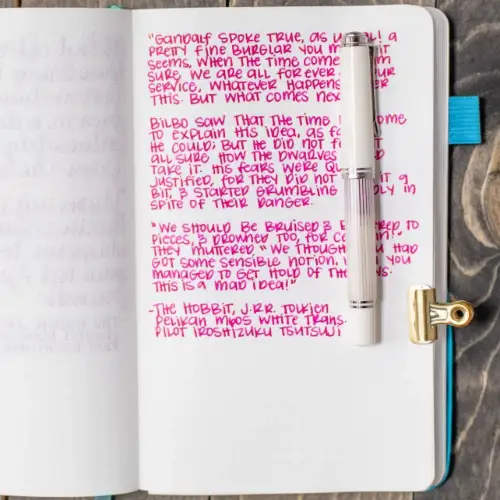 "GANDALF SPOKE TRUE, AS A
PRETTY FINE BURGLAR YOU IT
SEEMS, WHEN THE TIME
SURE WE ARE ALL FOR EVER
SERVICE, WHATEVER HAPPENS
THIS. BUT WHAT COMES
BILBO SAW THAT THE TIME
TO EXPLAIN HIS IDEA, AS
HE COULD; BUT HE DID NOT
ALL SURE HOW THE DWARVES
TAKE IT. HIS FEARS WERE
JUSTIFIED, FOR THEY DID NOT IT A
BIT, & STARTED GRUMBLING IN
SPITE OF THEIR DANGER.
"WE SHOULD BE BRUISED & TO
PIECES, & DROWNED TOO, FOR
THEY MUTTERED. "WE HAD
GOT SOME SENSIBLE NOTION, YOU
MANAGED TO GET HOLD OF
THIS IS A MAD IDEA!"
-THE HOBBIT, J.R.R. TOLKIEN
PELIKAN M605 WHITE TRANS.
PILOT IROSHIZUKU TSUTSUJI